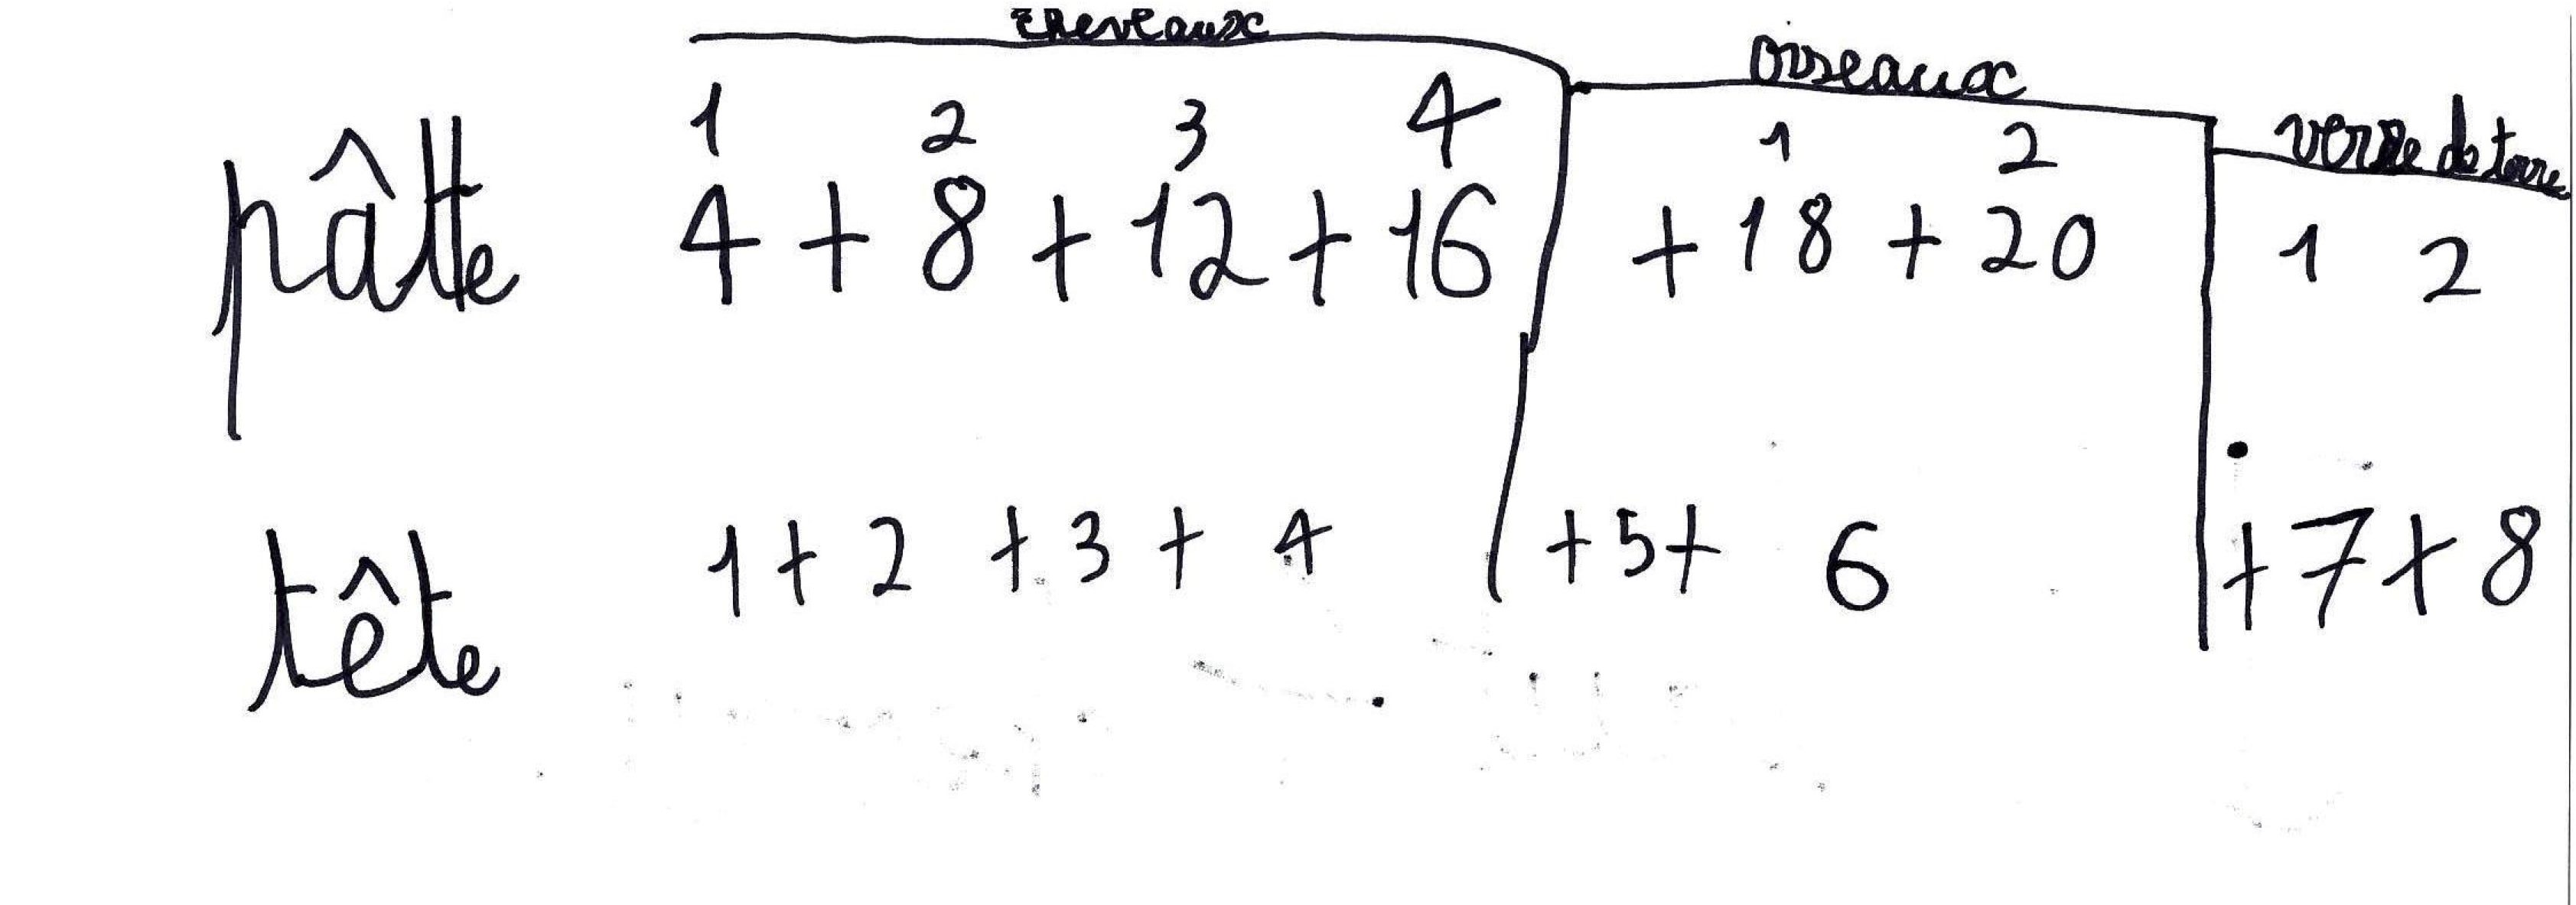 cheveaux
oiseaux
verre de terre
1 2 3 4 1 2
pâtte 4 + 8 + 12 + 16 + 18 + 20 1 2
tête 1 + 2 + 3 + 4 + 5 + 6 + 7 + 8